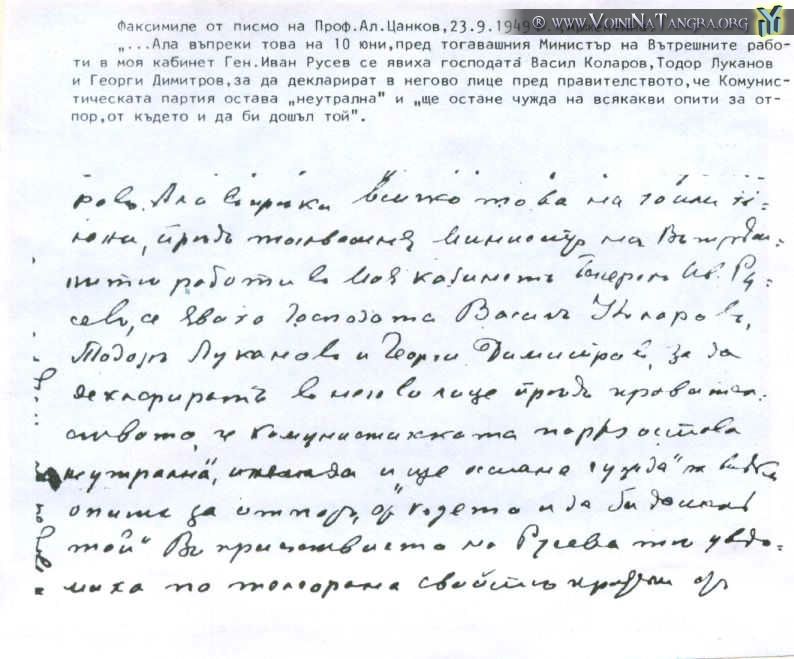 ® www.VoiniNaTangra.org
Факсимиле от писмо на Проф.Ал.Цанков,23.9.1949
„...Ала въпреки това на 10 юни,пред тогавашния Министър на Вътрешните рабо-
ти в моя кабинет Ген.Иван Русев се явиха господата Васил Коларов,Тодор Луканов
и Георги Димитров,за да декларират в негово лице пред правителството,че Комунис-
тическата партия остава „неутрална" и „ще остане чужда на всякакви опити за от-
пор,от където и да би дошъл той".
Ала въпреки всичко това на 10
юни, предъ тогавашния Министър на Вътреш-
нитѣ работи въ моя кабинетъ Генерал Ив. Ру-
севъ, се явиха господата Василъ Коларовъ,
Тодоръ Лукановъ и Георги Димитровъ, за да
декларирать въ негово лице предъ правител-
ството, че комунистическата остава
неутрална", и „ще остане чужда"
опити за отпоръ, отъ където и да би дошълъ
той" Въ присъствието на Русева те уведо-
миха по телеграма